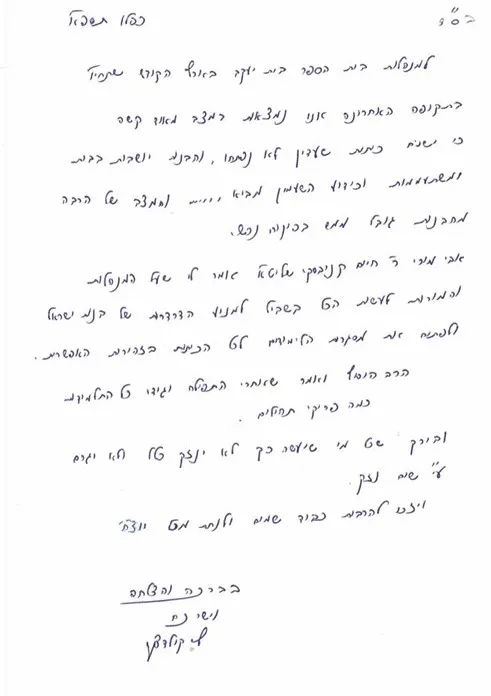 בס"ד
כסלו תשפ"א
למנהלות בית הספר בית יעקב בארץ הקודש שתחי'
בתקופה האחרונה אנו נמצאות במצב מאוד קשה
כי ישנם כיתות שעדיין לא נפתחו, והבנות יושבות בבית
ומשתעממות וכידוע השעמום מביא ..... והמצב של הרבה
מהבנות גובל ממש בפיקוח נפש.
אבי מורי ר' חיים קניבסקי שליט"א אומר לי שעל המנהלות
והמורות לעשות הכל בשביל למנוע הדרדרות של בנות ישראל
ולפתוח את מסגרת הלימודים לכל הכיתות בזהירות האפשרית.
הרב הוסיף ואמר שאחרי התפילה יגידו כל התלמידות
כמה פרקי תהילים.
ובירך שכל מי שיעשה כך לא ינזק כלל ולא יגרם
ע"י שום נזק.
ויזכו להרבות כבוד שמים ולנחת מכל יוצ"ח
בברכה והצלחה